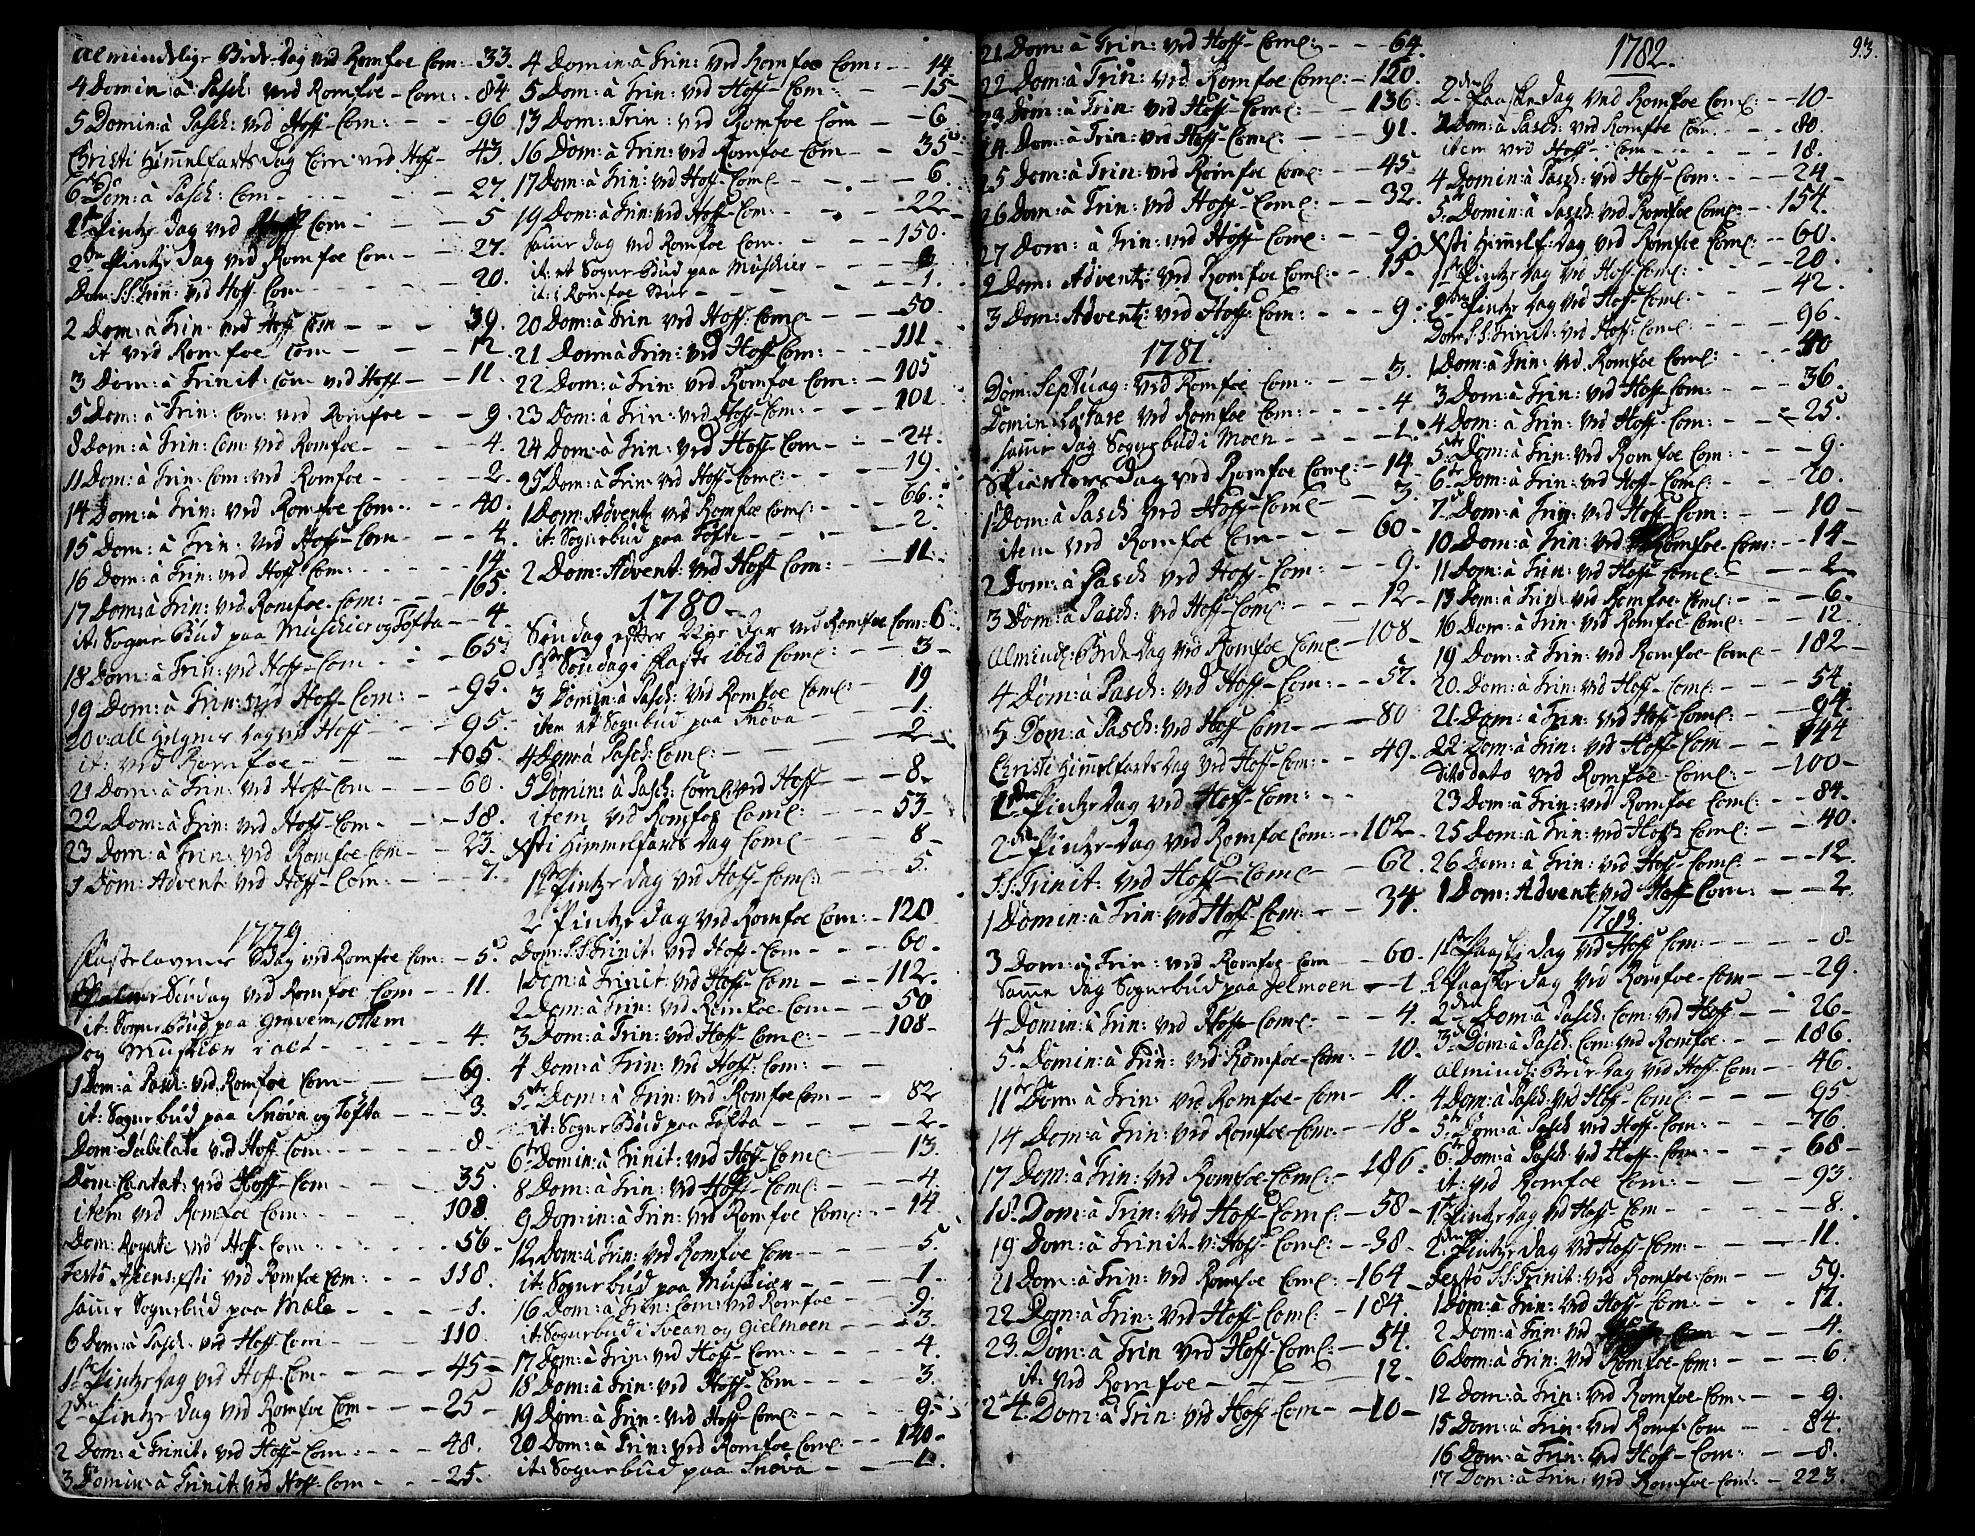 Almindelig Bede-dag ved Romfoe Com: 33.
4 Domin: à Pasch: ved Romfoe-Com: - 84
5 Domin: à Pasch: ved Hoff-Com: - - 96
Christi Himmelfarts dag Com: ved Hoff- 43.
6 Dom: à Pasch: Com - - - 27.
1ste Pintze dag ved Hoff Com - - 5
2den Pintze dag ved Romfoe Com - - 27.
Dom: S:S: Trin: ved Hoff-Com - - 20.
2 Dom: à Trin: ved Hoff Com - - - 39.
it ved Romfoe Com - - - 12.
3 Dom: à Trinit: Com ved Hoff - - 11.
5 Dom: à Trin: Com: ved Romfoe - - 9.
8 Dom: à Trin: Com: ved Romfoe - - 4.
11 Dom: à Trin: Com: ved Romfoe - - 2.
14 Dom: à Trin: ved Romfoe Com - - 40.
15 Dom: à Trin: ved Hoff-Com - - 4.
16 Dom: à Trin: ved Hoff Com: - - 14.
17 Dom: à Trin: ved Romfoe-Com: - - 165.
it: Sogne Bud paa Muschier og Tofta - - 4.
18 Dom: à Trin: ved Hoff-Com - - 65.
19 Dom: à Trin: ved Hoff Com: - - 95.
20 v: all Helgens dag ved Hoff - - 95.
it: ved Romfoe - - - 105.
21 Dom: à Trin: ved Hoff-Com - - 60.
22 Dom: à Trin: ved Hoff-Com - - 18.
23 Dom: à Trin: ved Romfoe Com - - 23.
1 Dom: Advent: ved Hoff-Com: - - 7.
1779
Fastelavns Sdag ved Romfoe Com: - 5.
Palme Søndag ved Romfoe Com - - 11.
it: Sogne Bud paa Gravem, Ottem
og Muskiær i alt - - - 4.
1 Dom: à Pasch: ved Romfoe Com - - 69.
it: Sogne bud paa Snøva og Tofta - - 3.
Dom: Jubilate ved Hoff-Com - - 8.
Dom: Cantat: ved Hoff-Com - - 35.
item ved Romfoe Com: - - 108.
Dom: Rogate ved Hoff-Com - - 56.
Festo Ascens: Xsti ved Romfoe Com: - - 118.
samme Sognebud paa Mæle - - - 1.
6 Dom: à Pasch: ved Hoff Com - - 110.
1ste Pintze dag ved Hoff-Com - - 45-
2den Pintze dag ved Romfoe Com - - 25-
2 Dom: à Trinit: ved Hoff-Com: - - 48.
3 Domin: à Trinit: ved Hoff Com - - 25.
4 Domin à Trin: ved Romfoe Com: - - 14
5 Dom: à Trin: ved Hoff-Com: - - 15-
13 Dom: Trin: ved Romfoe Com - - 6.
16 Dom: à Trin: ved Romfoe Com - - 35-
17 Dom: à Trin: ved Hoff-Come - - 6.
19 Dom: à Trin: ved Hoff-Com: - - 22.
samme dag ved Romfoe Com: - - 150.
it: et Sogne Bud paa Muschier - -
it: i Romfoe Stue - - - 1.
20 Dom: à Trin ved Hoff-Come - - 50.
21 Dom: à Trin: ved Hoff Com: - - 111.
22 Dom: à Trin: ved Romfoe Com: - - 105
23 Dom: à Trin: ved Hoff-Com: - - 101
24 Dom: à Trin: ved Hoff Com - - 24.
25 Dom: à Trin: ved Hoff-Come: - - 19.
1 Dom: Advent: ved Romfoe Come: - - 66.
it: Sognebud paa Tofta - - - 2.
2 Dom: Advent: ved Hoff Com: - - 11.
1780-
Søndag efter Nyt aar ved Romfoe Com: 6.
1ste Søndag i Faste ibid Come: - - 3-
3 Domin: à Pasch: ved Romfoe Come: - 19
item et Sognebud paa Snøva - - 1.
4 Dom: à Pasch: Come: - - - 2-
5 Domin: à Pasch: Come ved Hoff - - 8-
item ved Romfoe Come: - - 53-
Xsti Himmelfarts dag Come - - 8-
1ste Pintze dag ved Hoff-Come: - - 5.
2 Pintze dag ved Romfoe Com: - 120
Dom: S:S: Trinit: ved Hoff-Com - - 60.
1 Dom: à Trinit: ved Hoff-Com: - - 112.
2 Dom: à Trin: ved Romfoe-Com - - 50
3 Dom: à Trin: ved Hoff-Come: - - 108-
4 Dom: à Trin: ved Hoff-Com: - -
5te Dom: à Trin: ved Romfoe Com - - 82
it: Sogne Bud paa Tofta - - - 2-
6te Domin: à Trinit: ved Hoff-Come - - 13.
8 Dom: à Trin: ved Hoff-Come: - - 4.
9 Domin: à Trin: ved Romfoe Come: - - 14
12 Dom: à Trin: ved Romfoe Com - - 5.
it: Sognebud paa Muskiær - - - 1.
16 Dom: à Trin: Com: ved Romfoe - - 9.
it: Sognebud i Svean og Gielmoen - - 3.
17 Dom: à Trin: ved Hoff-Com: - - 4.
18 Dom: à Trin: ved Hoff-Com - - 3.
19 Dom: à Trin: ved Hoff-Come: - - 9-
20 Dom: à Trin: ved Romfoe Come: - - 140-
it: Sognebud paa Snøva - - - 1.
21 Dom: à Trin: ved Hoff-Come: - - 64.
22 Dom: à Trin: ved Romfoe Come: - 120.
23 Dom: à Trin: ved Hoff-Come: - - 136.
24 Dom: à Trin: ved Hoff-Come: - - 91.
25 Dom: à Trin: ved Romfoe Come: - - 45-
26 Dom: à Trin: ved Hoff-Come: - - 32.
27 Dom: à Trin: ved Hoff-Com: - - 9.
2 Dom: Advent: ved Romfoe Come: - - 15
3 Dom: Advent: ved Hoff-Com: - - 9.
1781.
Dom: Septuag: ved Romfoe Com: - - 3.
Domin Lætare ved Romfoe Com: - - 4.
samme dag Sognebud i Moen - - - 1.
Skiærtorsdag ved Romfoe Come: - 14.
1 Dom: à Pasch ved Hoff-Come - - 3.
item ved Romfoe Com - - - 60-
2 Dom: à Pasch ved Hoff-Com: - - 9.
3 Dom: à Pasch: ved Hoff-Come: - - 12-
Almind: Bede dag ved Romfoe Come: - 108-
4 Dom: à Pasch: ved Hoff Com: - - 57.
5 Dom: à Pasch: ved Hoff Com - - 80
Christi Himmelfarts dag ved Hoff-Com: - - 49.
1ste Pintze dag ved Hoff-Com: - -
2den Pintze-dag ved Romfoe Com: - 102-
S:S: Trinit: ved Hoff-Come - - 62.
1 Domin: à Trin: ved Hoff-Com: - - 34.
3 Dom: à Trin: ved Romfoe-Com - - 60.
samme dag Sognebud paa Jelmoen - - 1.
4 Domin: à Trin: ved Hoff-Come: - - 4.
5te Domin: à Trin: ved Romfoe-Com: - - 10.
11te Dom: à Trin: ved Romfoe-Com - 11.
14 Dom: à Trin: ved Romfoe-Com: - - 18.
17 Dom: à Trin: ved Romfoe-Come: - 186.
18. Dom: à Trin: ved Hoff-Come: - - 58-
19 Dom: à Trinit: v: Hoff-Come: - - 38-
21 Dom: à Trin: ved Romfoe Come: - 164-
22 Dom: à Trin: ved Hoff-Come: - - 184.
23. Dom: à Trin ved Hoff-Come: - - 54.
it: ved Romfoe - - - 12.
24. Dom: à Trin: ved Hoff-Com - - 10-
93.
1782.
2den Paaske dag ved Romfoe Come: - - 10-
2 Dom: à Pasch: ved Romfoe Com - - 80.
item ved Hoff-Com - - - 18.
4 Domin: à Pasch: ved Hoff-Com: - - 24-
5te Domin: à Pasch: ved Romfoe Come: - 154.
Xsti Himmelf: dag ved Romfoe Come: - 60.
1ste Pintze dag ved Hoff-Come: - - 20.
2den Pintze dag ved Hoff-Come: - - 42.
Dom: S:S: Trinit: ved Hoff-Come: - - 96.
1 Dom: à Trin: ved Romfoe Come: - -
3 Dom: à Trin: ved Hoff-Com: - - 36.
4 Dom: à Trin: ved Hoff-Com: - - 25.
5te Dom: à Trin: ved Romfoe Com: - - 9.
6te Dom: à Trin: ved Hoff-Come: - - 20.
7de Dom: à Trin: ved Hoff-Com: - - 10-
10 Dom: à Trin: ved Romfoe-Com: - - 14-
11 Dom: à Trin: ved Hoff-Come: - - 2-
13 Dom: à Trin: ved Romfoe-Come: - - 6.
16 Dom: à Trin: ved Romfoe Come: - - 12.
19 Dom: à Trin: ved Romfoe-Come - - 182-
20. Dom: à Trin: ved Hoff-Come: - - 54.
21. Dom: à Trin: ved Hoff-Come: - - 94.
22 Dom: à Trin: ved Hoff-Com - - 144
Dito dato ved Romfoe-Come: - - 100-
23 Dom: à Trin: ved Romfoe Com: - - 84.
25 Dom: à Trin: ved Hoff Come: - - 40.
26 Dom: à Trin: ved Hoff-Com: - - 12.
1 Dom: Advent: ved Hoff-Com: - - 2.
1783.
1ste Paaske dag ved Hoff Com: - - 8-
2 Paaske dag ved Romfoe-Com - - 29.
2den Dom: à Pasch: Com: ved Hoff - - 26-
3de Dom: à Pasch: Com: ved Romfoe - - 186.
Almind: Bede dag ved Hoff-Com - - 46.
4 Dom: à Pasch: ved Hoff-Com: - - 95
5te Dom: à Pasch ved Hoff-Com: - - 76.
6te Dom: à Pasch: ved Hoff-Com: - - 68-
it: ved Romfoe Com: - - 93.
1ste Pintze dag ved Hoff-Com - - 8.
2den Pintze dag ved Hoff-Com: - - 11.
Festo S:S: Trinit: ved Romfoe-Com - - 59.
1 Dom: à Trin: ved Hoff-Com - - 12.
2 Dom: à Trin: ved Com - - 4.
6 Dom: à Trin: ved Romfoe-Com: - - 6.
12 Dom: à Trin: ved Romfoe-Com: - - 9.
15 Dom: à Trin: ved Romf-Com - - 84.
16 Dom: à Trin: ved Hoff-Com: - - 8.
17 Dom: à Trin: ved Romfoe-Com: - 223.